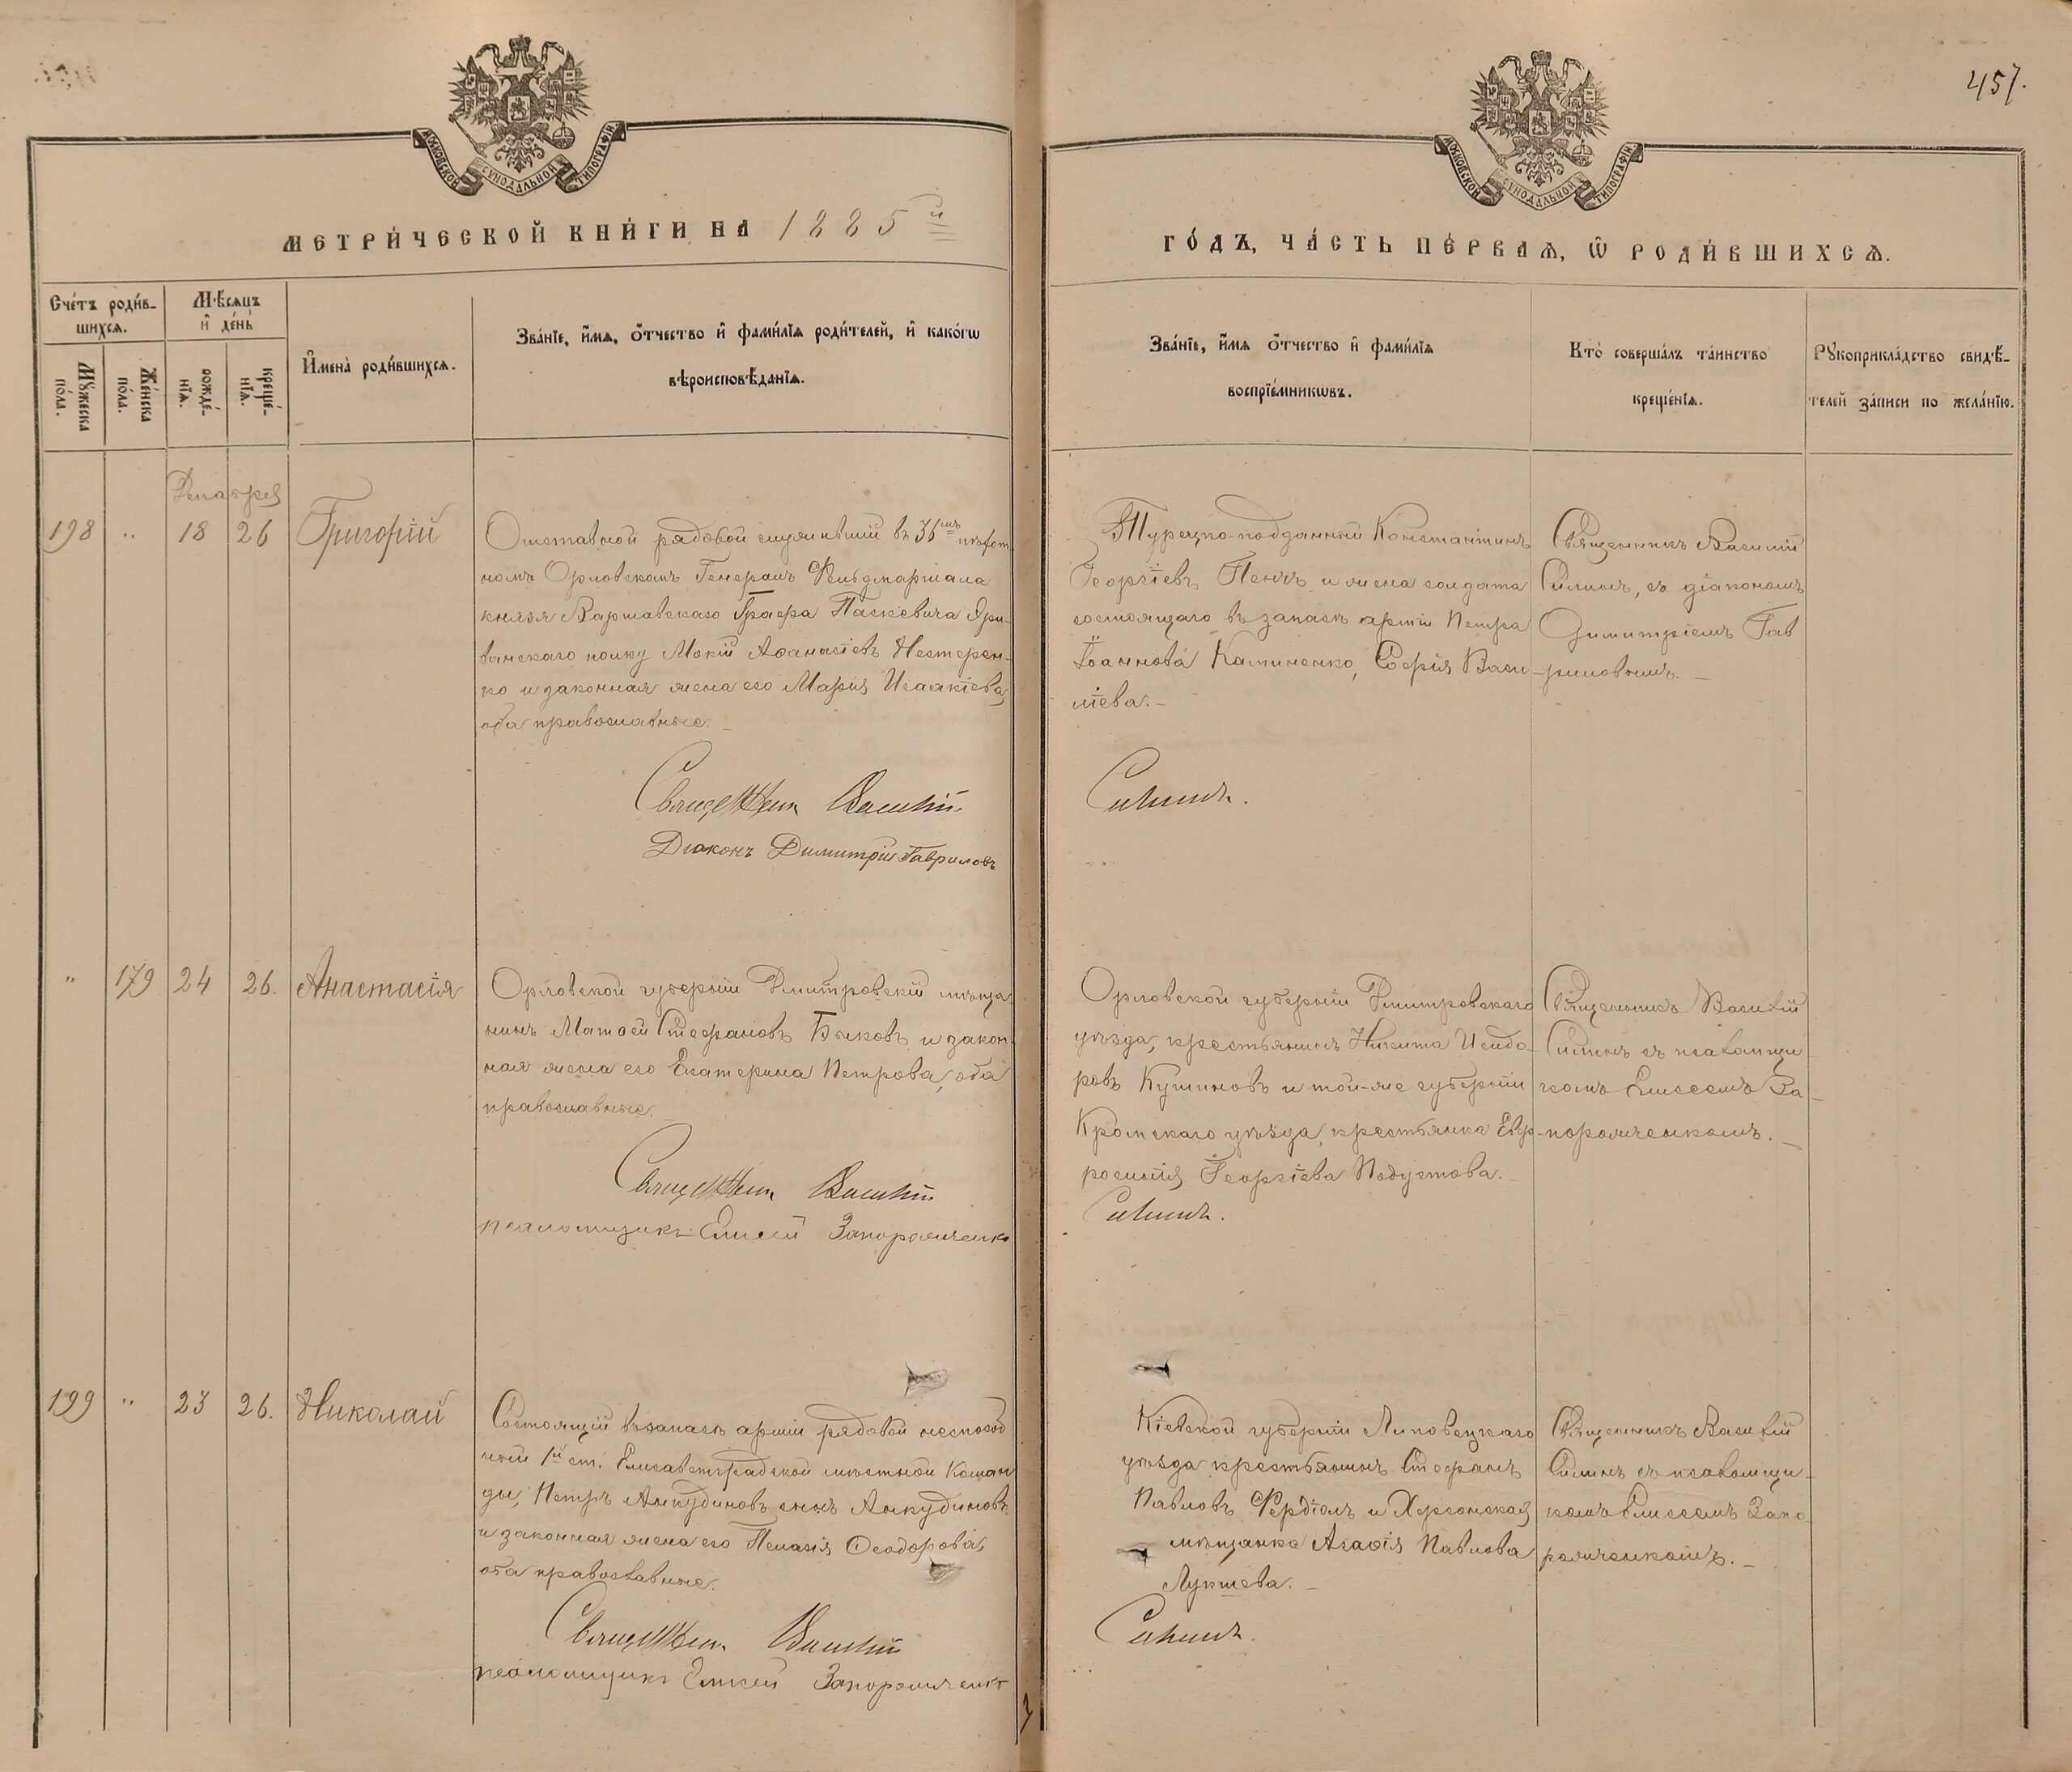 457.
МОСКОВСКОЙ СѴНОДАЛЬНОЙ ТИПОГРАФІИ
МОСКОВСКОЙ СѴНОДАЛЬНОЙ ТИПОГРАФІИ
МЕТРИ́ЧЕСКОЙ КНИ́ГИ НА 1885й
ГО́ДЪ, ЧА́СТЬ ПЕ́РВАѦ, Ѡ҆ РОДИ́ВШИХСѦ.
Сче́тъ роди́в-
шихсѧ.
Мꙋ́жеска
по́ла.
Же́нска
по́ла.
Мѣ́сѧцъ
и҆ де́нь
рожде́-
нїѧ.
креще́-
нїѧ.
И҆мена̀ роди́вшихсѧ.
Зва́нїе, и҆́мѧ, ѻ҆́тчество и҆ фами́лїѧ роди́телей, и҆ како́гѡ
вѣроисповѣ́данїѧ.
Зва́нїе, и҆́мѧ ѻ҆́тчество и҆ фами́лїѧ
воспрїе́мникѡвъ.
Кто̀ соверша́лъ та́инство
креще́нїѧ.
Рꙋкоприкла́дство свидѣ́-
телей за́писи по жела́нїю.
Декабря
198 " 18 26 Григорій
Отставной рядовой служившій въ 36мъ пѣхот-
номъ Орловскомъ Генералъ Фельдмаршала
князя Варшавскаго Графа Паскевича Эри-
ванскаго полку Мокій Аѳанасіевъ Нестерен-
ко и законная жена его Марія Исаакіева,
оба православные.
Священник Василій
Діаконъ Димитрій Гавриловъ
Турецко-подданный Константинъ
Георгіевъ и жена солдата
состоящаго въ запасѣ арміи Петра
Іоаннова Калиненко, Софія Васи-
ліева.
Силинъ.
Священникъ Василій
Силинъ, съ діакономъ
Димитріемъ Гав
риловымъ.
" 179 24 26. Анастасія
Орловской губерніи Дмитровскій мѣща-
нинъ Матѳей Стефановъ Быковъ и закон-
ная жена его Екатерина Петрова, оба
православные.
Священник Василій
псаломщикъ Елисей Запорожченко
Орловской губерніи Дмитровскаго
уѣзда, крестьянинъ Никита Исидо-
ровъ и той-же губерніи
Кромскаго уѣзда, крестьянка Евф-
росинія Георгіева
Силинъ.
Священникъ Василій
Силинъ съ псаломщи-
комъ Елисеемъ За-
порожченкомъ.
199 " 23 26. Николай
Состоящій въ запасѣ арміи рядовой неспособ
ной 1й ст. Елисаветградской мѣстной Коман
ды, Петръ Анкудиновъ сынъ Анкудиновъ
и законная жена его Пелагія Ѳеодорова,
оба православные.
Священник Василій
псаломщикъ Елисей Запорожченко
Кіевской губерніи Липовецкаго
уѣзда крестьянинъ Стефанъ
Павловъ и Херсонская
мѣщанка Агаѳія Павлова
Силинъ.
Священникъ Василій
Силинъ съ псаломщи-
комъ Елисеемъ Запо-
рожченкомъ.